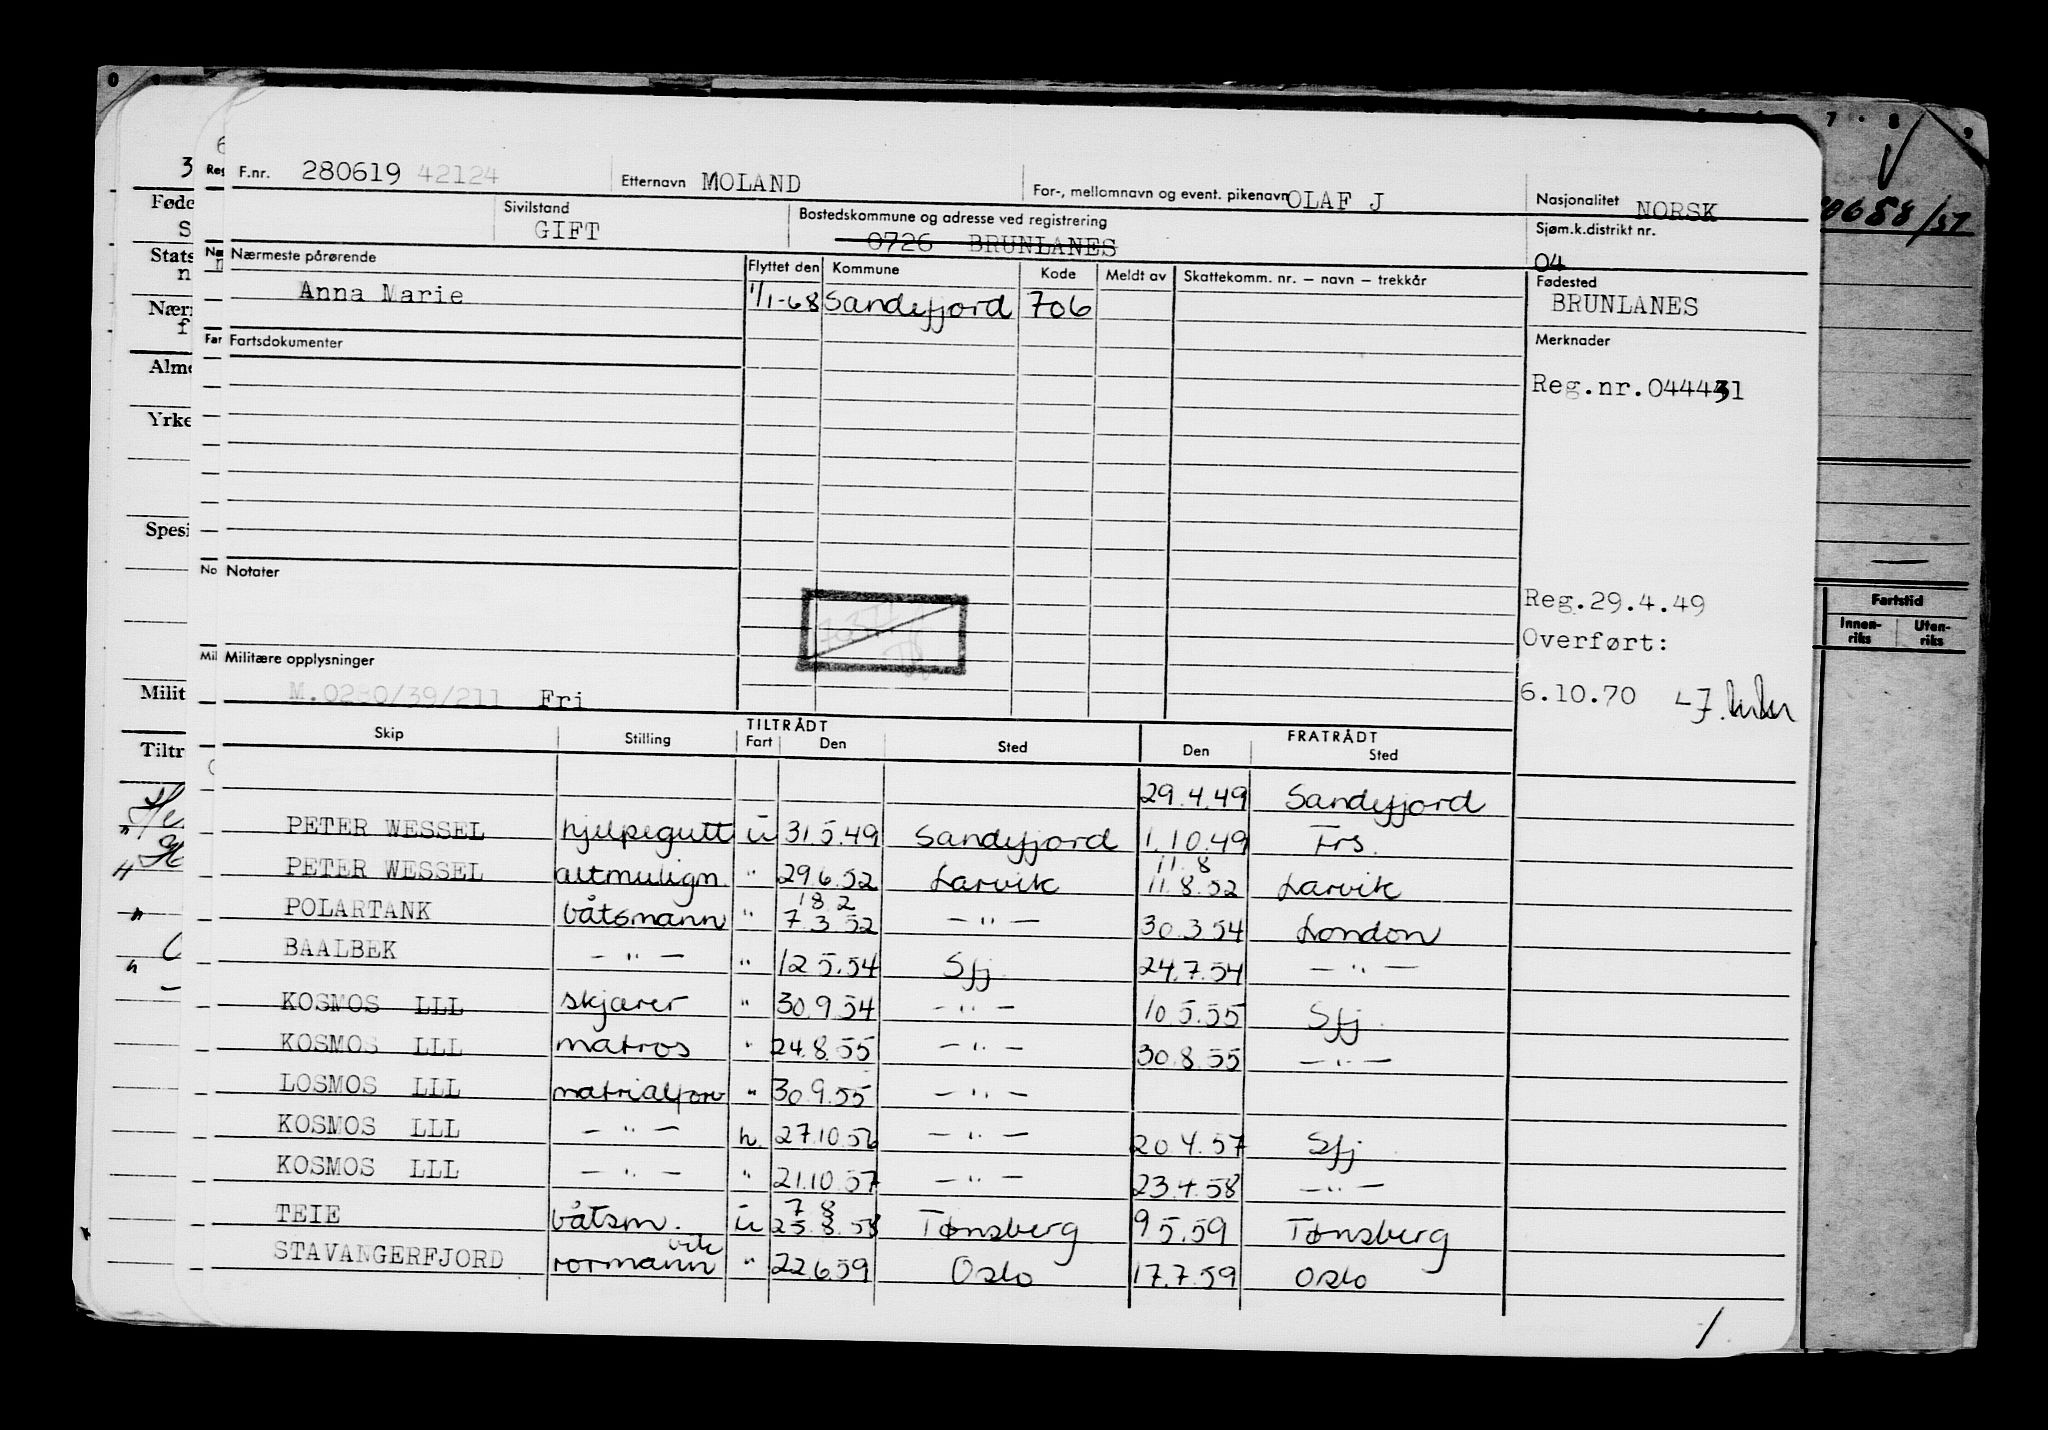 F.nr. 280619 42124 Etternavn MOLAND For-, mellomnavn og event. pikenavn OLAF J Nasjonalitet NORSK
Sivilstand GIFT Bostedskommune og adresse ved registrering 0726 BRUNLANES Sjøm.k.distrikt nr. 04
Nærmeste pårørende Flyttet den Kommune Kode Meldt av Skattekomm. nr. – navn – trekkår Fødested
Anna Marie 1/1-68 Sandefjord 706 BRUNLANES
Fartsdokumenter Merknader
Reg.nr.044431
Notater
Reg.29.4.49
Overført:
Militære opplysninger
M.0280/39/211 Fri 6.10.70
TILTRÅDT FRATRÅDT
Skip Stilling Fart Den Sted Den Sted
29.4.49 Sandefjord
PETER WESSEL hjelpegutt u 31.5.49 Sandefjord 1.10.49 Frs.
11.8
PETER WESSEL altmulign. " 29.6.52 Larvik 11.8.52 Larvik
18 2
POLARTANK båtsmann " 7.3.52 — " — 30.3.54 London
BAALBEK — " — " 12.5.54 Sfj 24.7.54 — " —
KOSMOS LLL skjærer " 30.9.54 — " — 10.5.55 Sfj.
KOSMOS LLL matros " 24.8.55 — " — 30.8.55 — " —
LOSMOS LLL matrialforv " 30.9.55 — " —
KOSMOS LLL — " — h. 27.10.56 — " — 20.4.57 Sfj
KOSMOS LLL — " — " 21.10.57 — " — 23.4.58 — " —
7 8
TEIE båtsm. u 25.8.58 Tønsberg 9.5.59 Tønsberg
vik
STAVANGERFJORD rormann " 22.6.59 Oslo 17.7.59 Oslo
1
7 8 9
Fartstid
Innen-riks Uten-riks
Føde
Stats
Nær
Alme
Yrke
Spesi
Milit
Tiltr